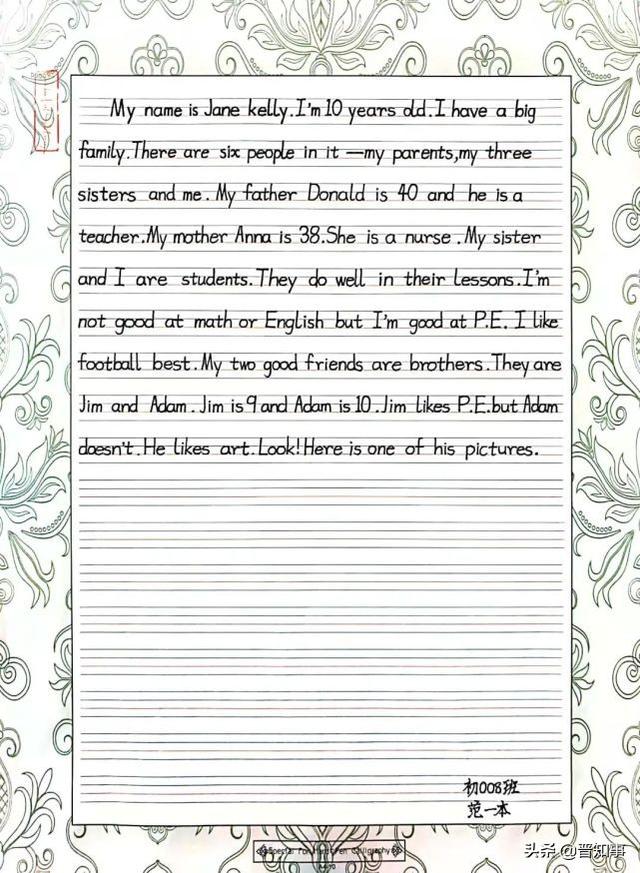 My name is Jane kelly.I'm 10 years old.I have a big
family.There are six people in it —my parents,my three
sisters and me. My father Donald is 40 and he is a
teacher.My mother Anna is 38.She is a nurse .My sister
and I are students.They do well in their lessons.I'm
not good at math or English but I'm good at P.E. I like
football best.My two good friends are brothers.They are
Jim and Adam.Jim is 9 and Adam is 10.Jim likes P.E.but Adam
doesn't.He likes art.Look!Here is one of his pictures.
初008班
范一本
Special For Hard Pen Calligraphy
头条 @晋知事